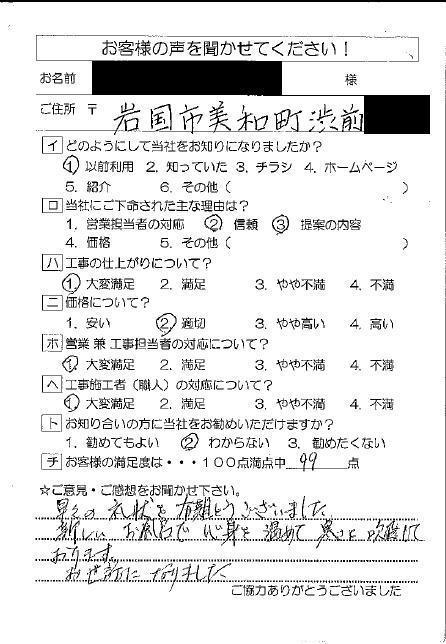 お客様の声を聞かせてください！
お名前 様
ご住所 〒 岩国市美和町渋前
イ どのようにして当社をお知りになりましたか？
① 以前利用 2. 知っていた 3. チラシ 4. ホームページ
5. 紹介 6. その他（ ）
ロ 当社にご下命された主な理由は？
1. 営業担当者の対応 ② 信頼 ③ 提案の内容
4. 価格 5. その他（ ）
ハ 工事の仕上がりについて？
① 大変満足 2. 満足 3. やや不満 4. 不満
ニ 価格について？
1. 安い ② 適切 3. やや高い 4. 高い
ホ 営業 兼 工事担当者の対応について？
① 大変満足 2. 満足 3. やや不満 4. 不満
ヘ 工事施工者（職人）の対応について？
① 大変満足 2. 満足 3. やや不満 4. 不満
ト お知り合いの方に当社をお勧めいただけますか？
1. 勧めてもよい ② わからない 3. 勧めたくない
チ お客様の満足度は・・・100点満点中 99 点
☆ご意見・ご感想をお聞かせ下さい。
早々の礼状を有難とうございました
新しい お風呂で 心身を 温めて 寒さを 吹飛して
おります。
お世話に なりました
ご協力ありがとうございました